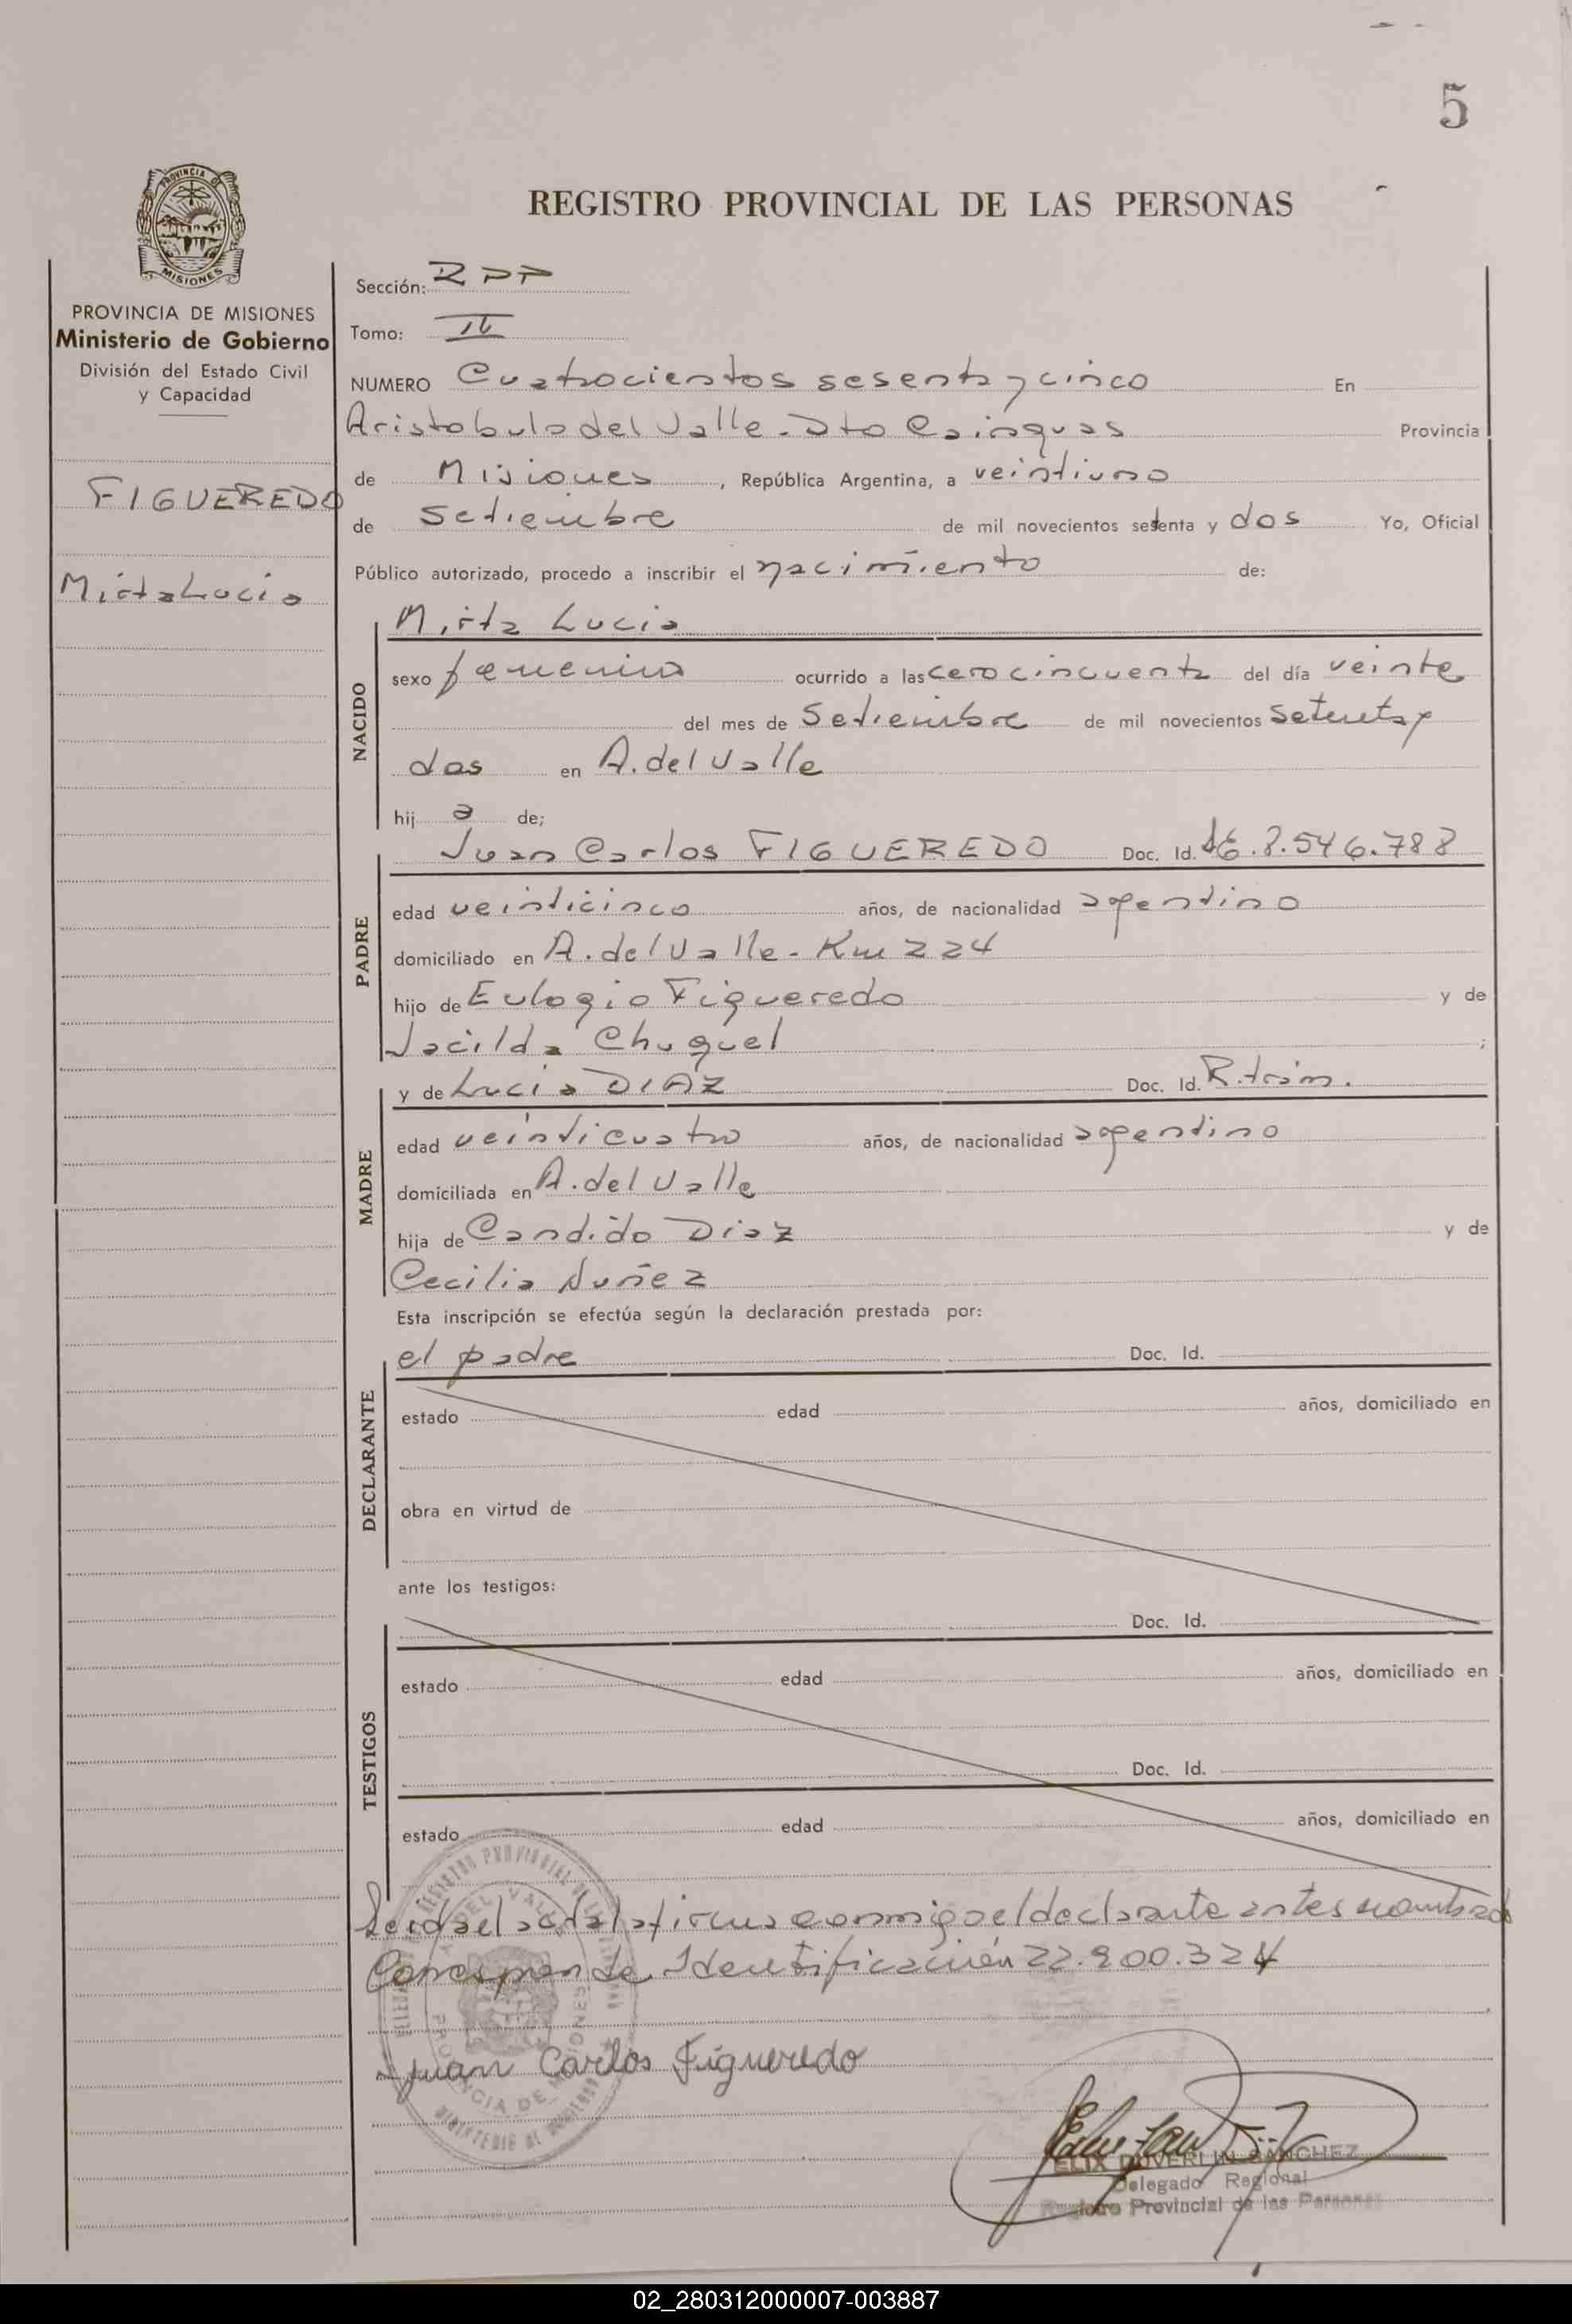 5
REGISTRO PROVINCIAL DE LAS PERSONAS
PROVINCIA
MISIONES
PROVINCIA DE MISIONES
Ministerio de Gobierno
División del Estado Civil
y Capacidad
FIGUEREDO
Mirta Lucia
Sección: RPP
Tomo: II
NUMERO Cuatrocientos sesenta y cinco En
Aristobulo del Valle - Dto Cainguas Provincia
de Misiones, República Argentina, a veintiuno
de Setiembre de mil novecientos setenta y dos Yo, Oficial
Público autorizado, procedo a inscribir el nacimiento de:
NACIDO
Mirta Lucia
sexo femenino ocurrido a las cero cincuenta del día veinte
del mes de Setiembre de mil novecientos setenta y
dos en A. del Valle
hij a de;
PADRE
Juan Carlos FIGUEREDO Doc. Id.
edad veinticinco años, de nacionalidad argentino
domiciliado en A. del Valle - Km 224
hijo de Eulogio Figueredo y de
Jacilda Chuquel ;
MADRE
y de Lucia DIAZ Doc. Id. R. trám.
edad veinticuatro años, de nacionalidad argentino
domiciliada en A. del Valle
hija de Candido Diaz y de
Cecilia Nuñez
Esta inscripción se efectúa según la declaración prestada por:
DECLARANTE
el padre Doc. Id.
estado edad años, domiciliado en
obra en virtud de
ante los testigos:
TESTIGOS
Doc. Id.
estado edad años, domiciliado en
Doc. Id.
estado edad años, domiciliado en
Leida el acta la firma conmigo el declarante antes nombrado
Corresponde Identificación 22.900.324
Juan Carlos Figueredo
DUVERLIN SANCHEZ
Delegado Regional
Registro Provincial de las Personas
02_280312000007-003887